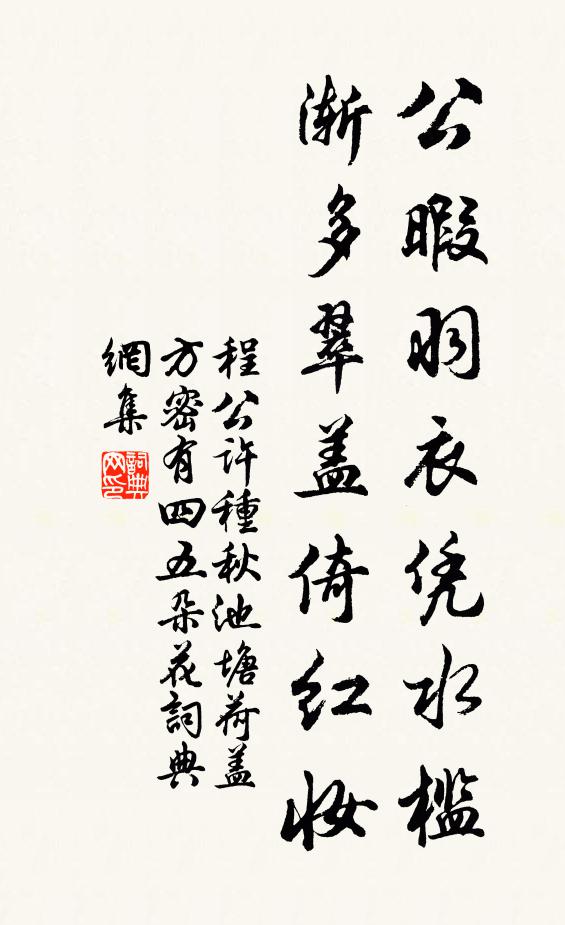 公暇羽衣凭水檻
漸多翠盖倚紅妝
程公許種秋池塘荷盖
方密有四五朵花詞典
網集
詞典網印